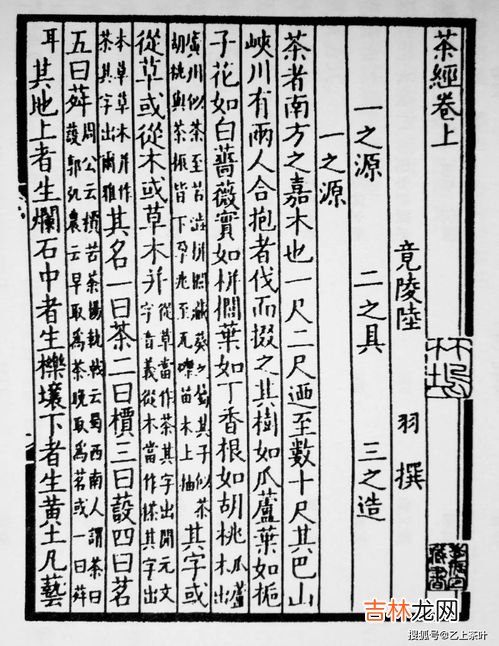 茶經卷上
竟陵陸 羽 撰
一之源 二之具 三之造
一之源
茶者南方之嘉木也一尺二尺迺至數十尺其巴山
峽川有兩人合抱者伐而掇之其樹如瓜蘆葉如梔
子花如白薔薇實如栟櫚葉如丁香根如胡桃 瓜蘆木出
廣州似茶至苦澁栟櫚蒲葵之屬其子似茶
胡桃與茶根皆下孕兆至瓦礫苗木上抽
其字或
從草或從木或草木并
從草當作茶其字出開元文
字音義從木當作搽其字出
本草草木并作
茶其字出爾雅
其名一曰茶二曰檟三曰蔎四曰茗
五曰荈
周公云檟苦茶揚執戟云蜀西南人謂茶曰
蔎郭弘農云早取為茶晚取為茗或一曰荈
耳其地上者生爛石中者生櫟壤下者生黃土凡藝
藏書
吉林龙网
搜狐号@乙上茶叶